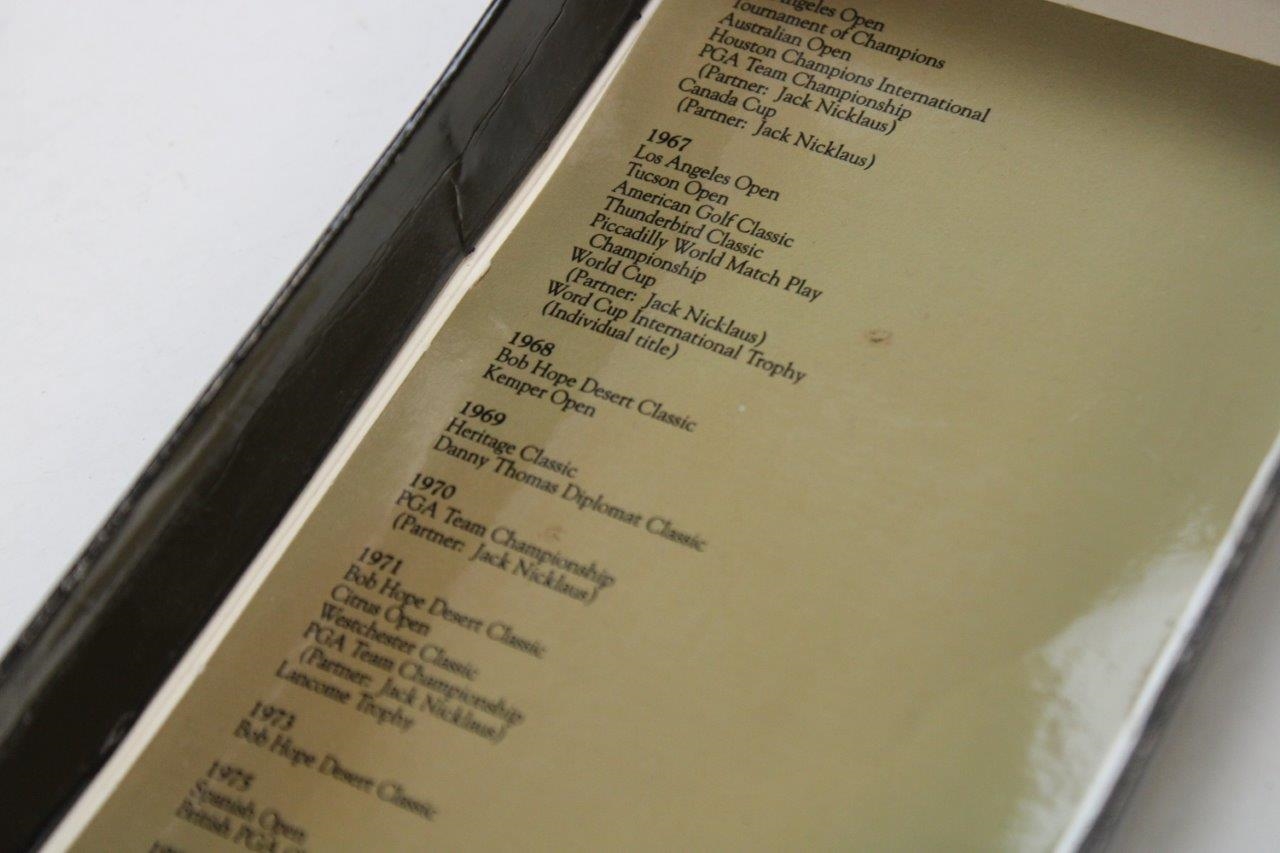 Angeles Open
Tournament of Champions
Australian Open
Houston Champions International
PGA Team Championship
(Partner: Jack Nicklaus)
Canada Cup
(Partner: Jack Nicklaus)
1967
Los Angeles Open
Tucson Open
American Golf Classic
Thunderbird Classic
Piccadilly World Match Play
Championship
World Cup
(Partner: Jack Nicklaus)
Word Cup International Trophy
(Individual title)
1968
Bob Hope Desert Classic
Kemper Open
1969
Heritage Classic
Danny Thomas Diplomat Classic
1970
PGA Team Championship
(Partner: Jack Nicklaus)
1971
Bob Hope Desert Classic
Citrus Open
Westchester Classic
PGA Team Championship
(Partner: Jack Nicklaus)
Lancome Trophy
1973
Bob Hope Desert Classic
1975
Spanish Open
British PGA